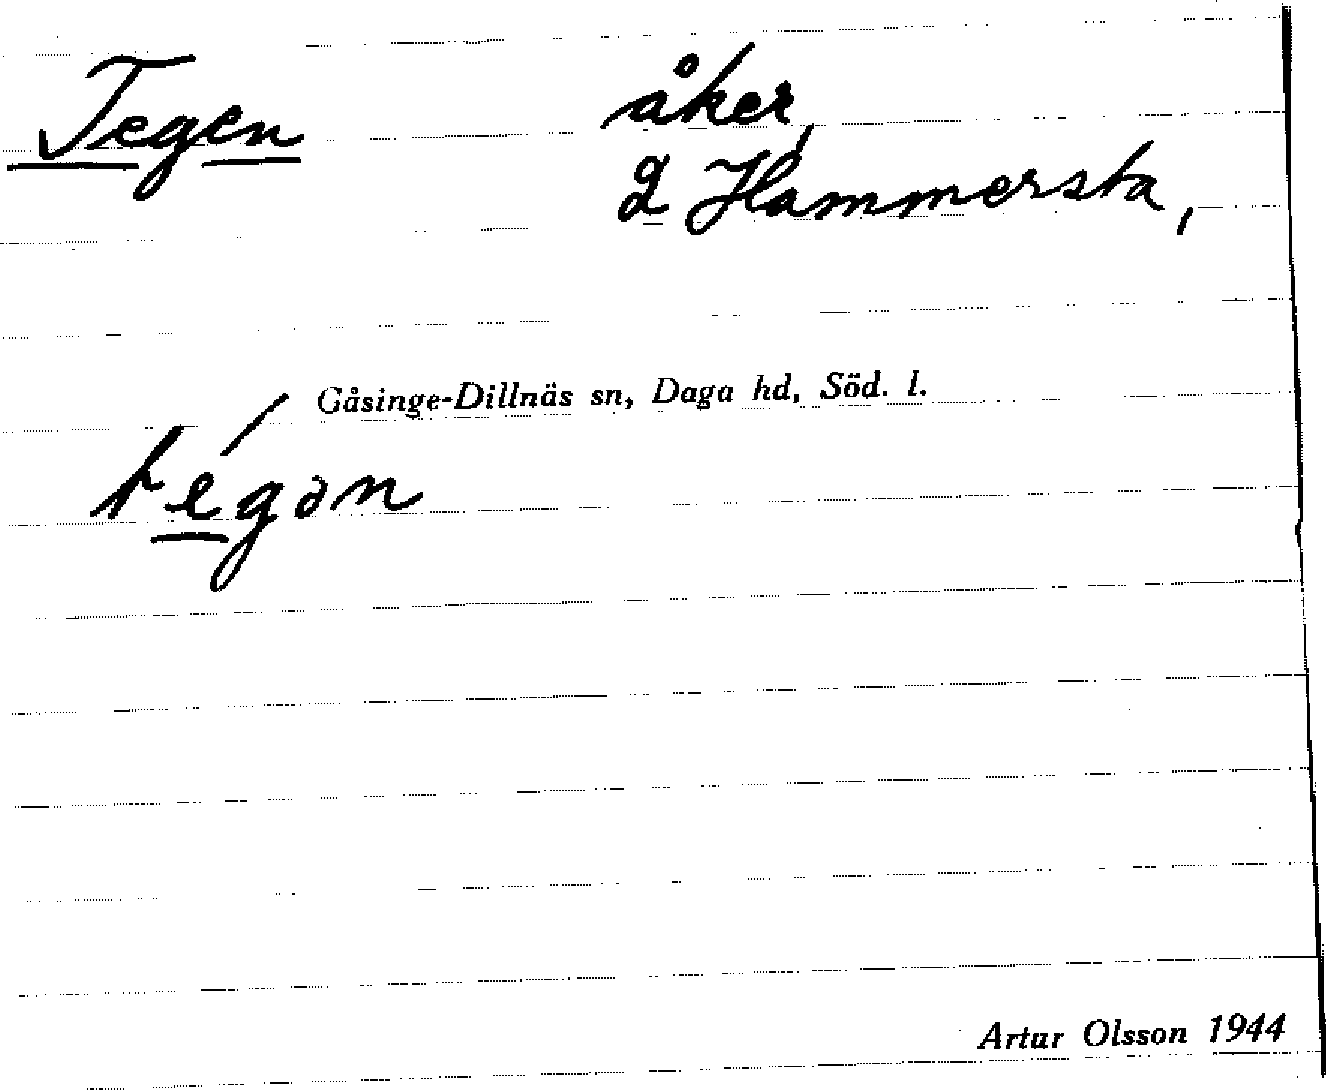 Tegen åker,
g Hammersta,
Gåsinge-Dillnäs sn, Daga hd, Söd. l.
tégən
Artur Olsson 1944